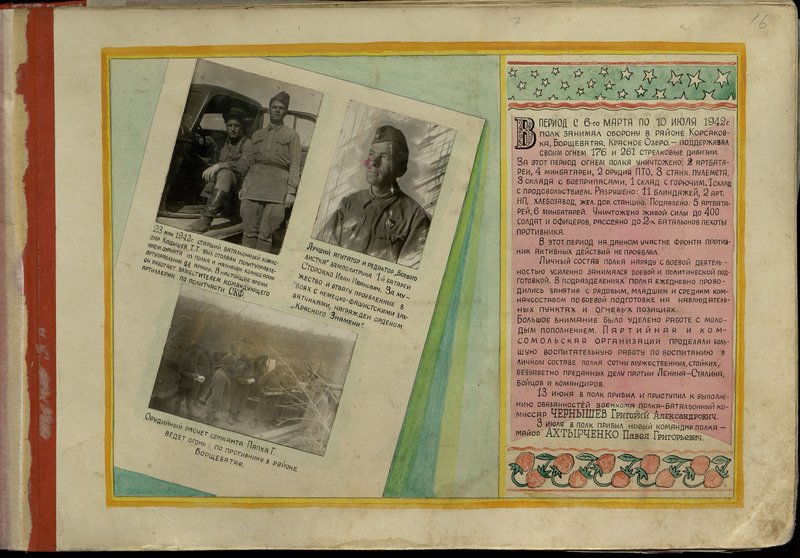 7
16
23 мая 1942г. старший батальонный комис-
сар Кидышев Т.Т. был отозван политуправле-
нием фронта из полка и назначен комиссаром
артуправления 24 армии. В настоящее время
он работает заместителем командующего
артиллерии по политчасти СКФ.
Лучший агитатор и редактор „Боевого
листка" замполитрука 1-й батареи
Сторожко Иван Иванович. За му-
жество и отвагу проявленные в
боях с немецко-фашистскими зах-
ватчиками, награжден орденом
„Красного Знамени".
Орудийный расчет сержанта Папка Г.
ведет огонь по противнику в районе
Борщеватая.
В период с 6-го марта по 10 июля 1942г.
полк занимал оборону в районе Корсаков-
ка, Борщеватая, Красное Озеро, – поддерживал
своим огнем 176 и 261 стрелковые дивизии.
За этот период огнем полка уничтожено: 2 артбата-
реи, 4 минбатареи, 2 орудия ПТО, 3 станк. пулемета,
3 склада с боеприпасами, 1 склад с горючим, 1 склад
с продовольствием. Разрушено: 11 блиндажей, 2 арт.
НП, хлебозавод, жел. дор. станцию. Подавлено: 5 артбата-
рей, 6 минбатарей. Уничтожено живой силы до 400
солдат и офицеров, рассеяно до 2-х батальонов пехоты
противника.
В этот период на данном участке фронта против-
ник активных действий не проявлял.
Личный состав полка наряду с боевой деятель-
ностью усиленно занимался боевой и политической под-
готовкой. В подразделениях полка ежедневно прово-
дились занятия с рядовым, младшим и средним ком-
начсоставом по боевой подготовке на наблюдатель-
ных пунктах и огневых позициях.
Большое внимание было уделено работе с моло-
дым пополнением. Партийная и ком-
сомольская организации проделали боль-
шую воспитательную работу по воспитанию в
личном составе полка сотни мужественных, стойких,
беззаветно преданных делу партии Ленина–Сталина,
бойцов и командиров.
13 июня в полк прибыл и приступил к выполне-
нию обязанностей военкома полка–батальонный ко-
миссар Чернышев Григорий Александрович.
3 июля в полк прибыл новый командир полка –
майор Ахтырченко Павел Григорьевич.